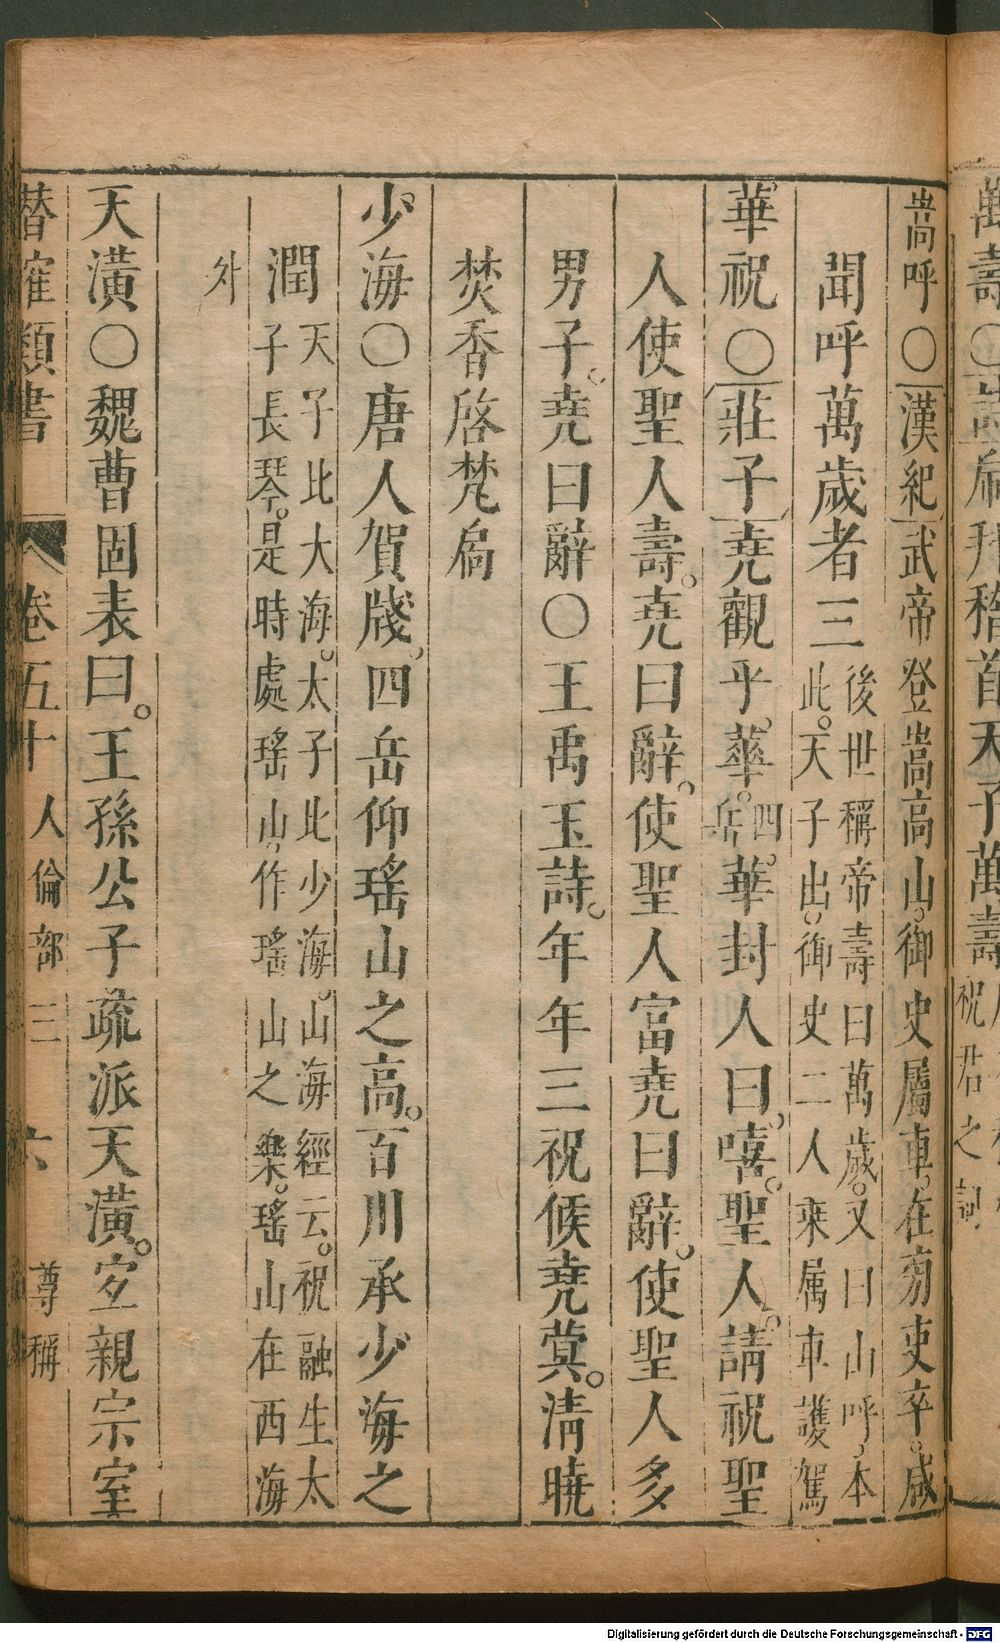 萬壽○詩𢈪拜稽首天子萬壽祝君之詞
嵩呼○漢紀武帝登嵩高山。御史屬車,在旁吏卒。咸
聞呼萬歲者三後世稱帝壽曰萬歲。又曰山呼,本
此。天子出,御史二人乘属車護駕
華祝○莊子堯觀乎。華。四岳。華封人曰,嘻。聖人。請祝聖
人使聖人壽。堯曰辭。使聖人富堯曰辭。使聖人多
男子。堯曰辭○王禹玉詩。年年三祝候堯蓂。清曉
焚香啓梵扃
少海○唐人賀牋,四岳仰瑤山之高。百川承少海之
潤天子比大海。太子比少海。山海經云。祝融生太
子長琴。是時處瑤山,作瑤山之樂。瑤山在西海
外
天潢○魏曹固表曰。王孫公子疏派天潢。㝎親宗室
替龍類書 卷五十 人倫部三 六 尊稱
Digitalisierung gefördert durch die Deutsche Forschungsgemeinschaft - DFG